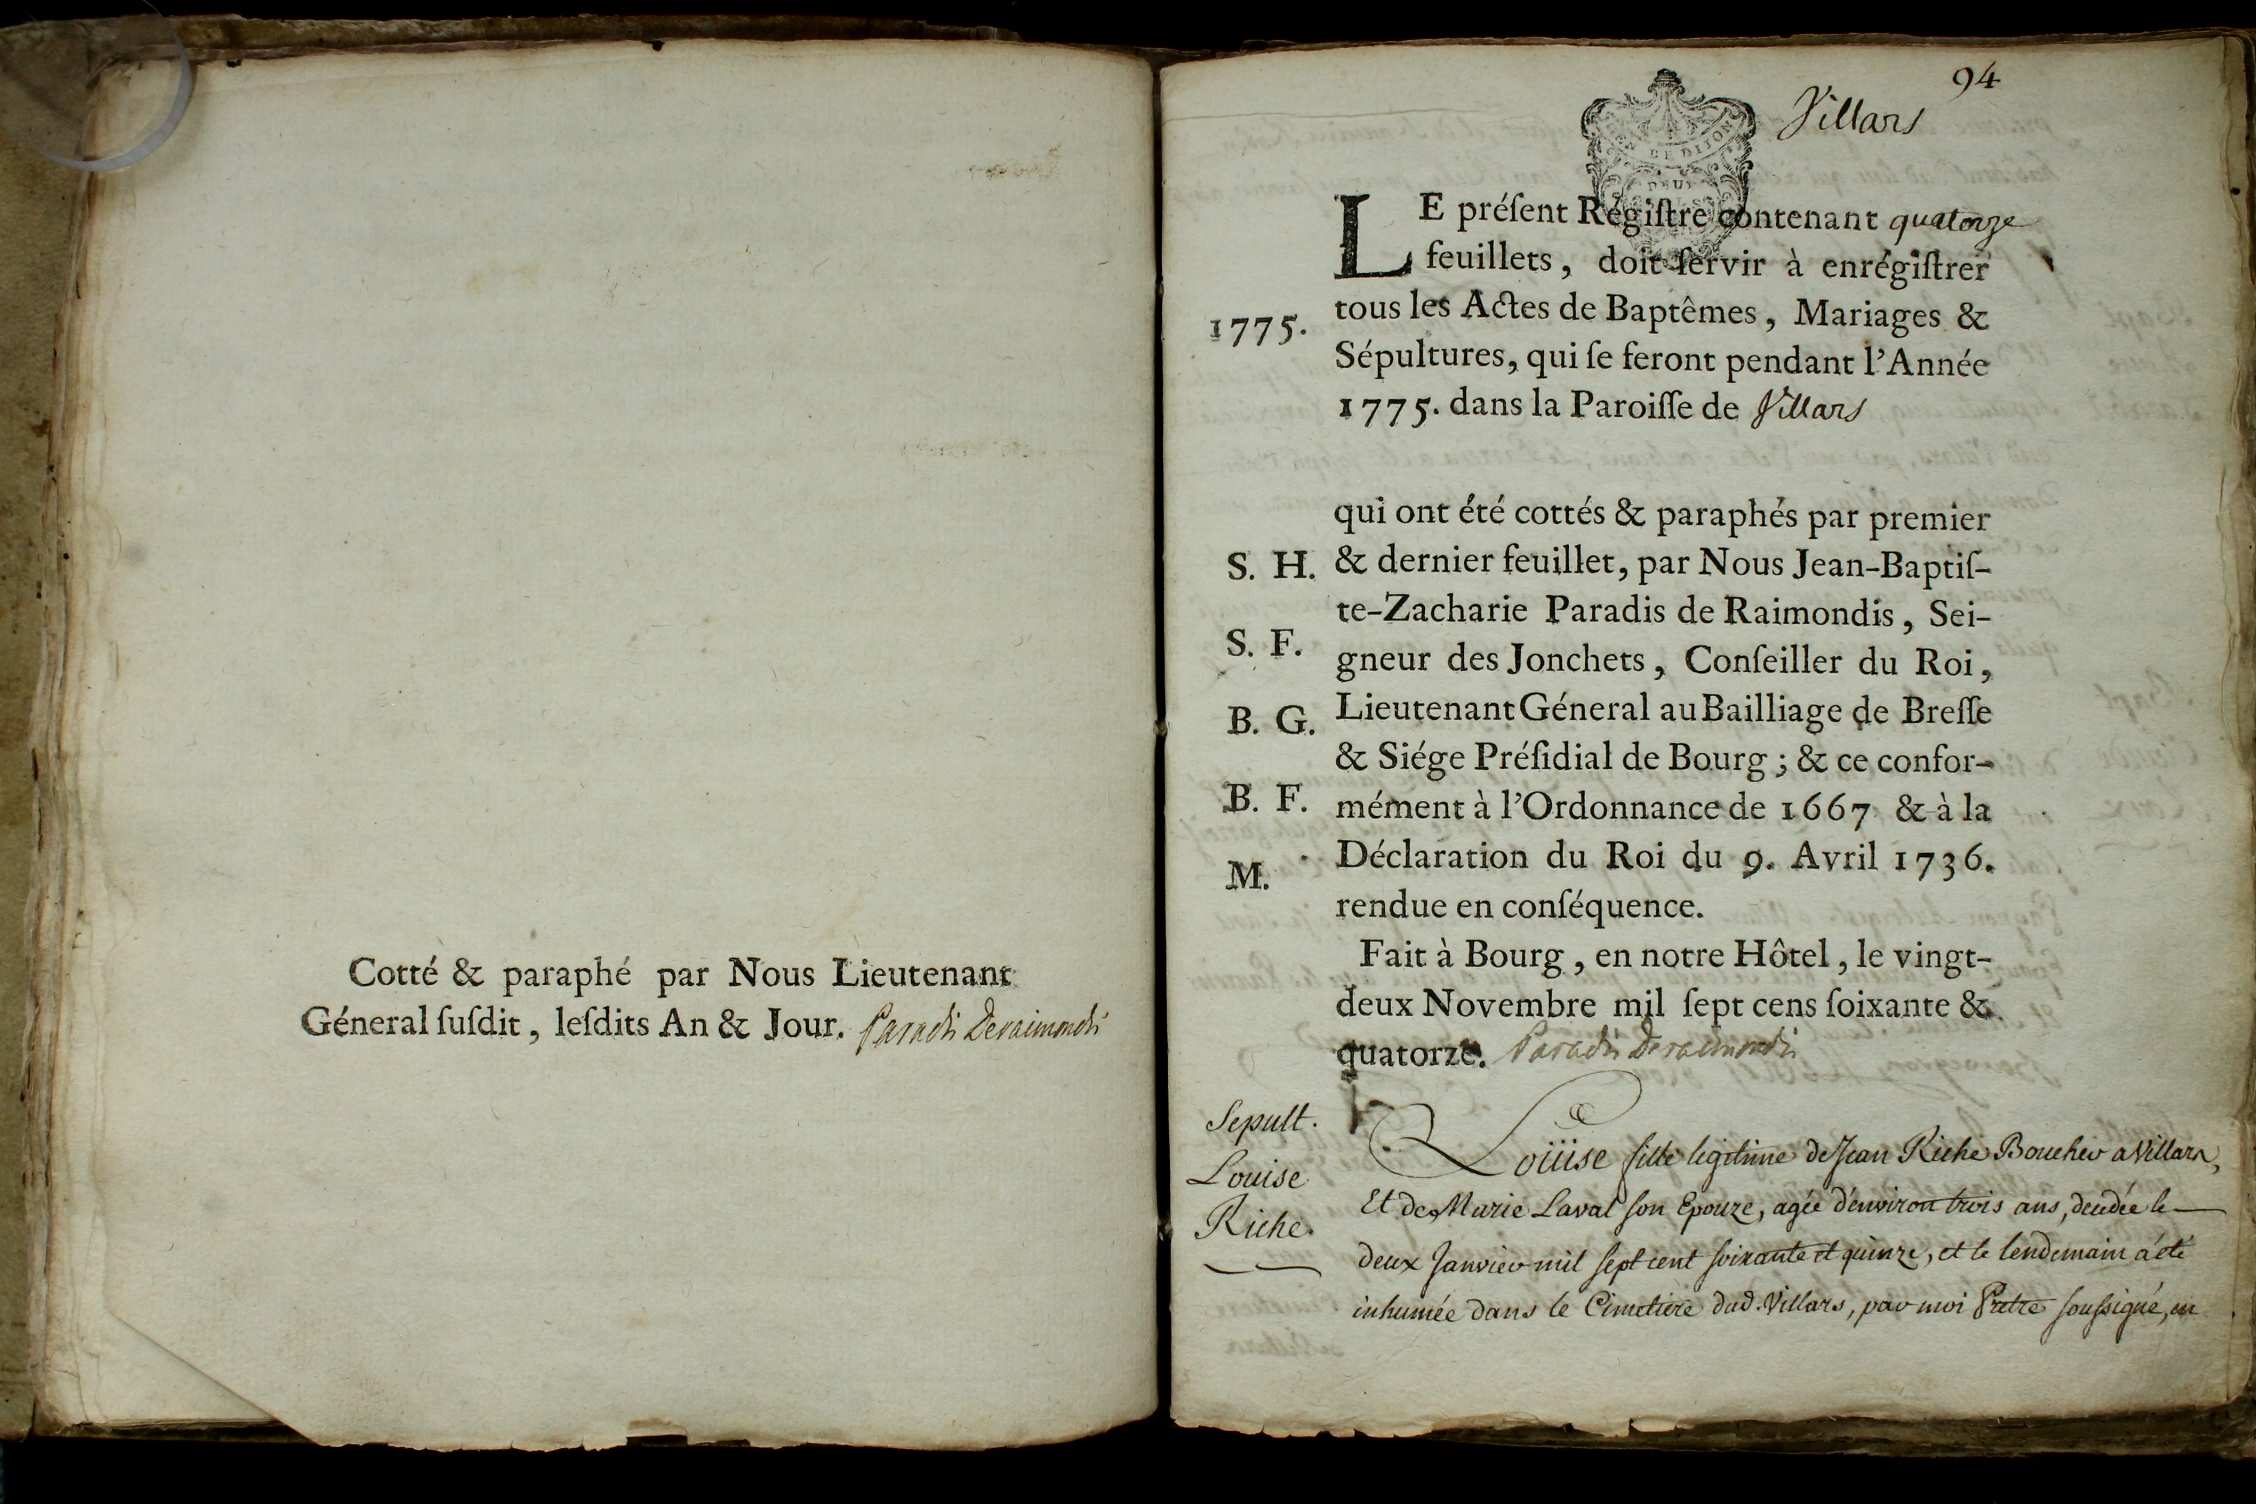 Cotté & paraphé par Nous Lieutenant
Géneral ſuſdit, leſdits An & Jour. Paradis Deraimondis
94
Villars
DE DIJON
DEUX
LE préſent Régiſtre contenant quatorze
feuillets, doit ſervir à enrégiſtrer
tous les Actes de Baptêmes, Mariages &
1775.
Sépultures, qui ſe feront pendant l'Année
1775. dans la Paroiſſe de Villars
qui ont été cottés & paraphés par premier
S. H.
& dernier feuillet, par Nous Jean-Baptiſ-
te-Zacharie Paradis de Raimondis, Sei-
S. F.
gneur des Jonchets, Conſeiller du Roi,
B. G.
Lieutenant Géneral au Bailliage de Breſſe
& Siége Préſidial de Bourg; & ce confor-
B. F.
mément à l'Ordonnance de 1667 & à la
Déclaration du Roi du 9. Avril 1736.
M.
rendue en conſéquence.
Fait à Bourg, en notre Hôtel, le vingt-
deux Novembre mil ſept cens ſoixante &
quatorze. Paradis Deraimondis
Sepult.
Louise
Riche.
Loüise fille legitime de Jean Riche Boucher a Villars,
Et de Marie Laval son Epouze, agée d'environ trois ans, decédée le
deux Janvier mil sept cent soixante et quinze, et le lendemain a été
inhumée dans le Cimetiere dud. Villars, par moi Prêtre soussigné, en